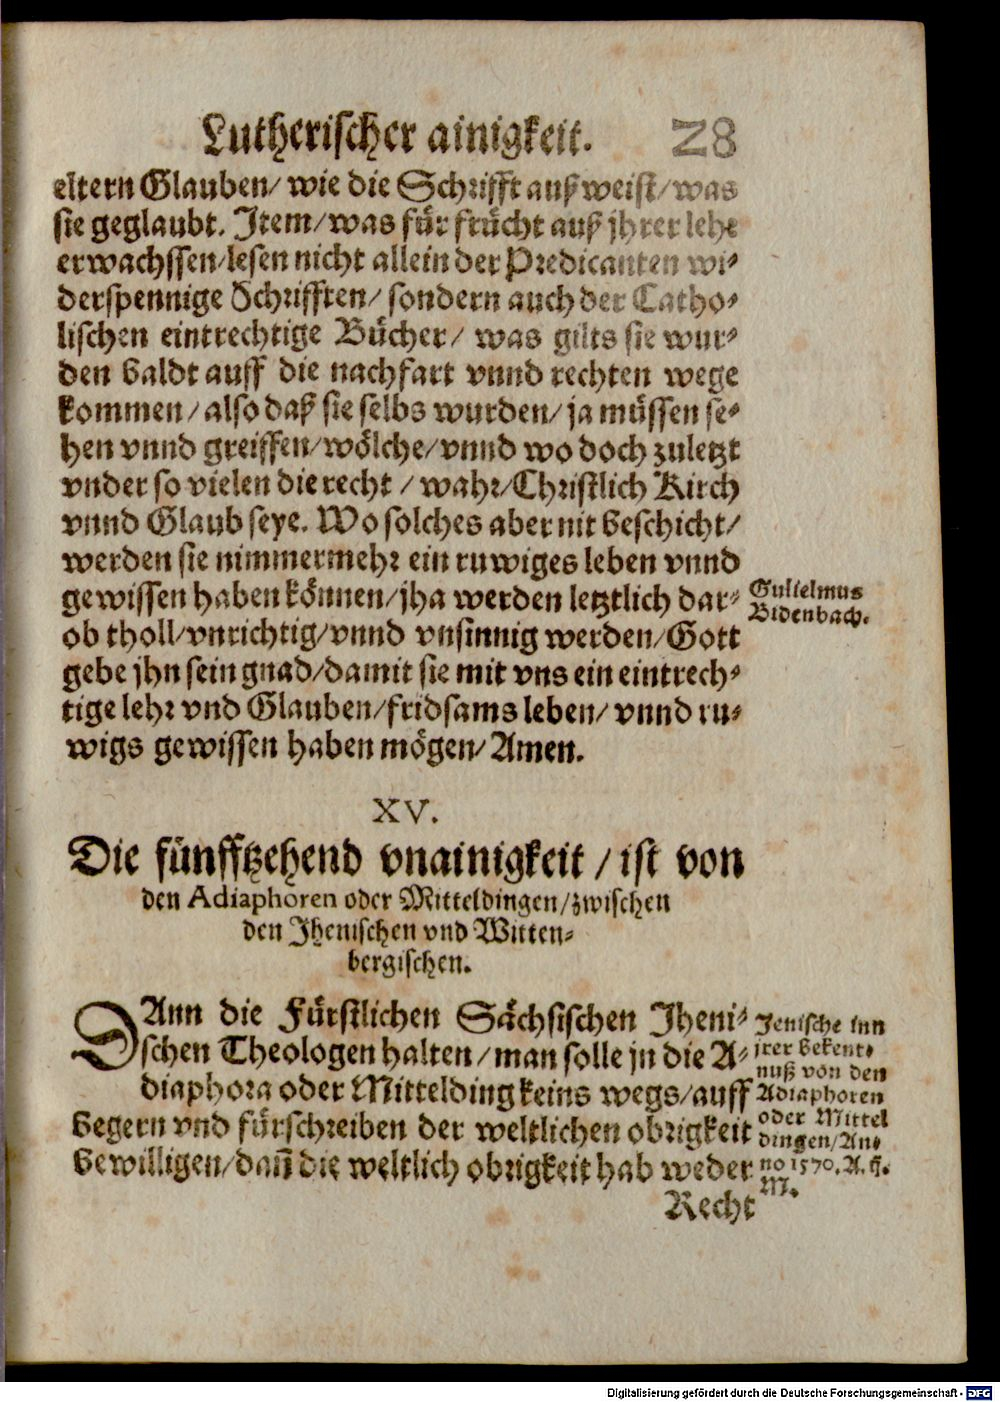 Lutherischer ainigkeit. 28
eltern Glauben/ wie die Schrifft außweist/ was
sie geglaubt. Item/ was für frücht auß jhrer lehr
erwachssen/ lesen nicht allein der Predicanten wi-
derspennige Schrifften/ sondern auch der Catho-
lischen eintrechtige Bücher/ was gilts sie wur-
den baldt auff die nachfart vnnd rechten wege
kommen/ also daß sie selbs wurden/ ja müssen se-
hen vnnd greiffen/ wölche/ vnnd wo doch zuletzt
vnder so vielen die recht/ wahr/ Christlich Kirch
vnnd Glaub seye. Wo solches aber nit beschicht/
werden sie nimmermehr ein ruwiges leben vnnd
gewissen haben können/ jha werden letztlich dar-
ob tholl/ vnrichtig/ vnnd vnsinnig werden/ Gott
gebe jhn sein gnad/ damit sie mit vns ein eintrech-
tige lehr vnd Glauben/ fridsams leben/ vnnd ru-
wigs gewissen haben mögen/ Amen.
Gulielmus
Bidenbach.
XV.
Die fünfftzehend vnainigkeit/ ist von
den Adiaphoren oder Mitteldingen/ zwischen
den Jhenischen vnd Witten-
bergischen.
DAnn die Fürstlichen Sächsischen Jheni-
schen Theologen halten/ man solle in die A-
diaphora oder Mittelding keins wegs/ auff
begern vnd fürschreiben der weltlichen obrigkeit
bewilligen/ dañ die weltlich obrigkeit hab weder
Recht
Jenische inn
jrer bekent-
nuß von den
Adiaphoren
oder Mittel
dingen/ An-
no 1570. A. ij.
M.
Digitalisierung gefördert durch die Deutsche Forschungsgemeinschaft - DFG